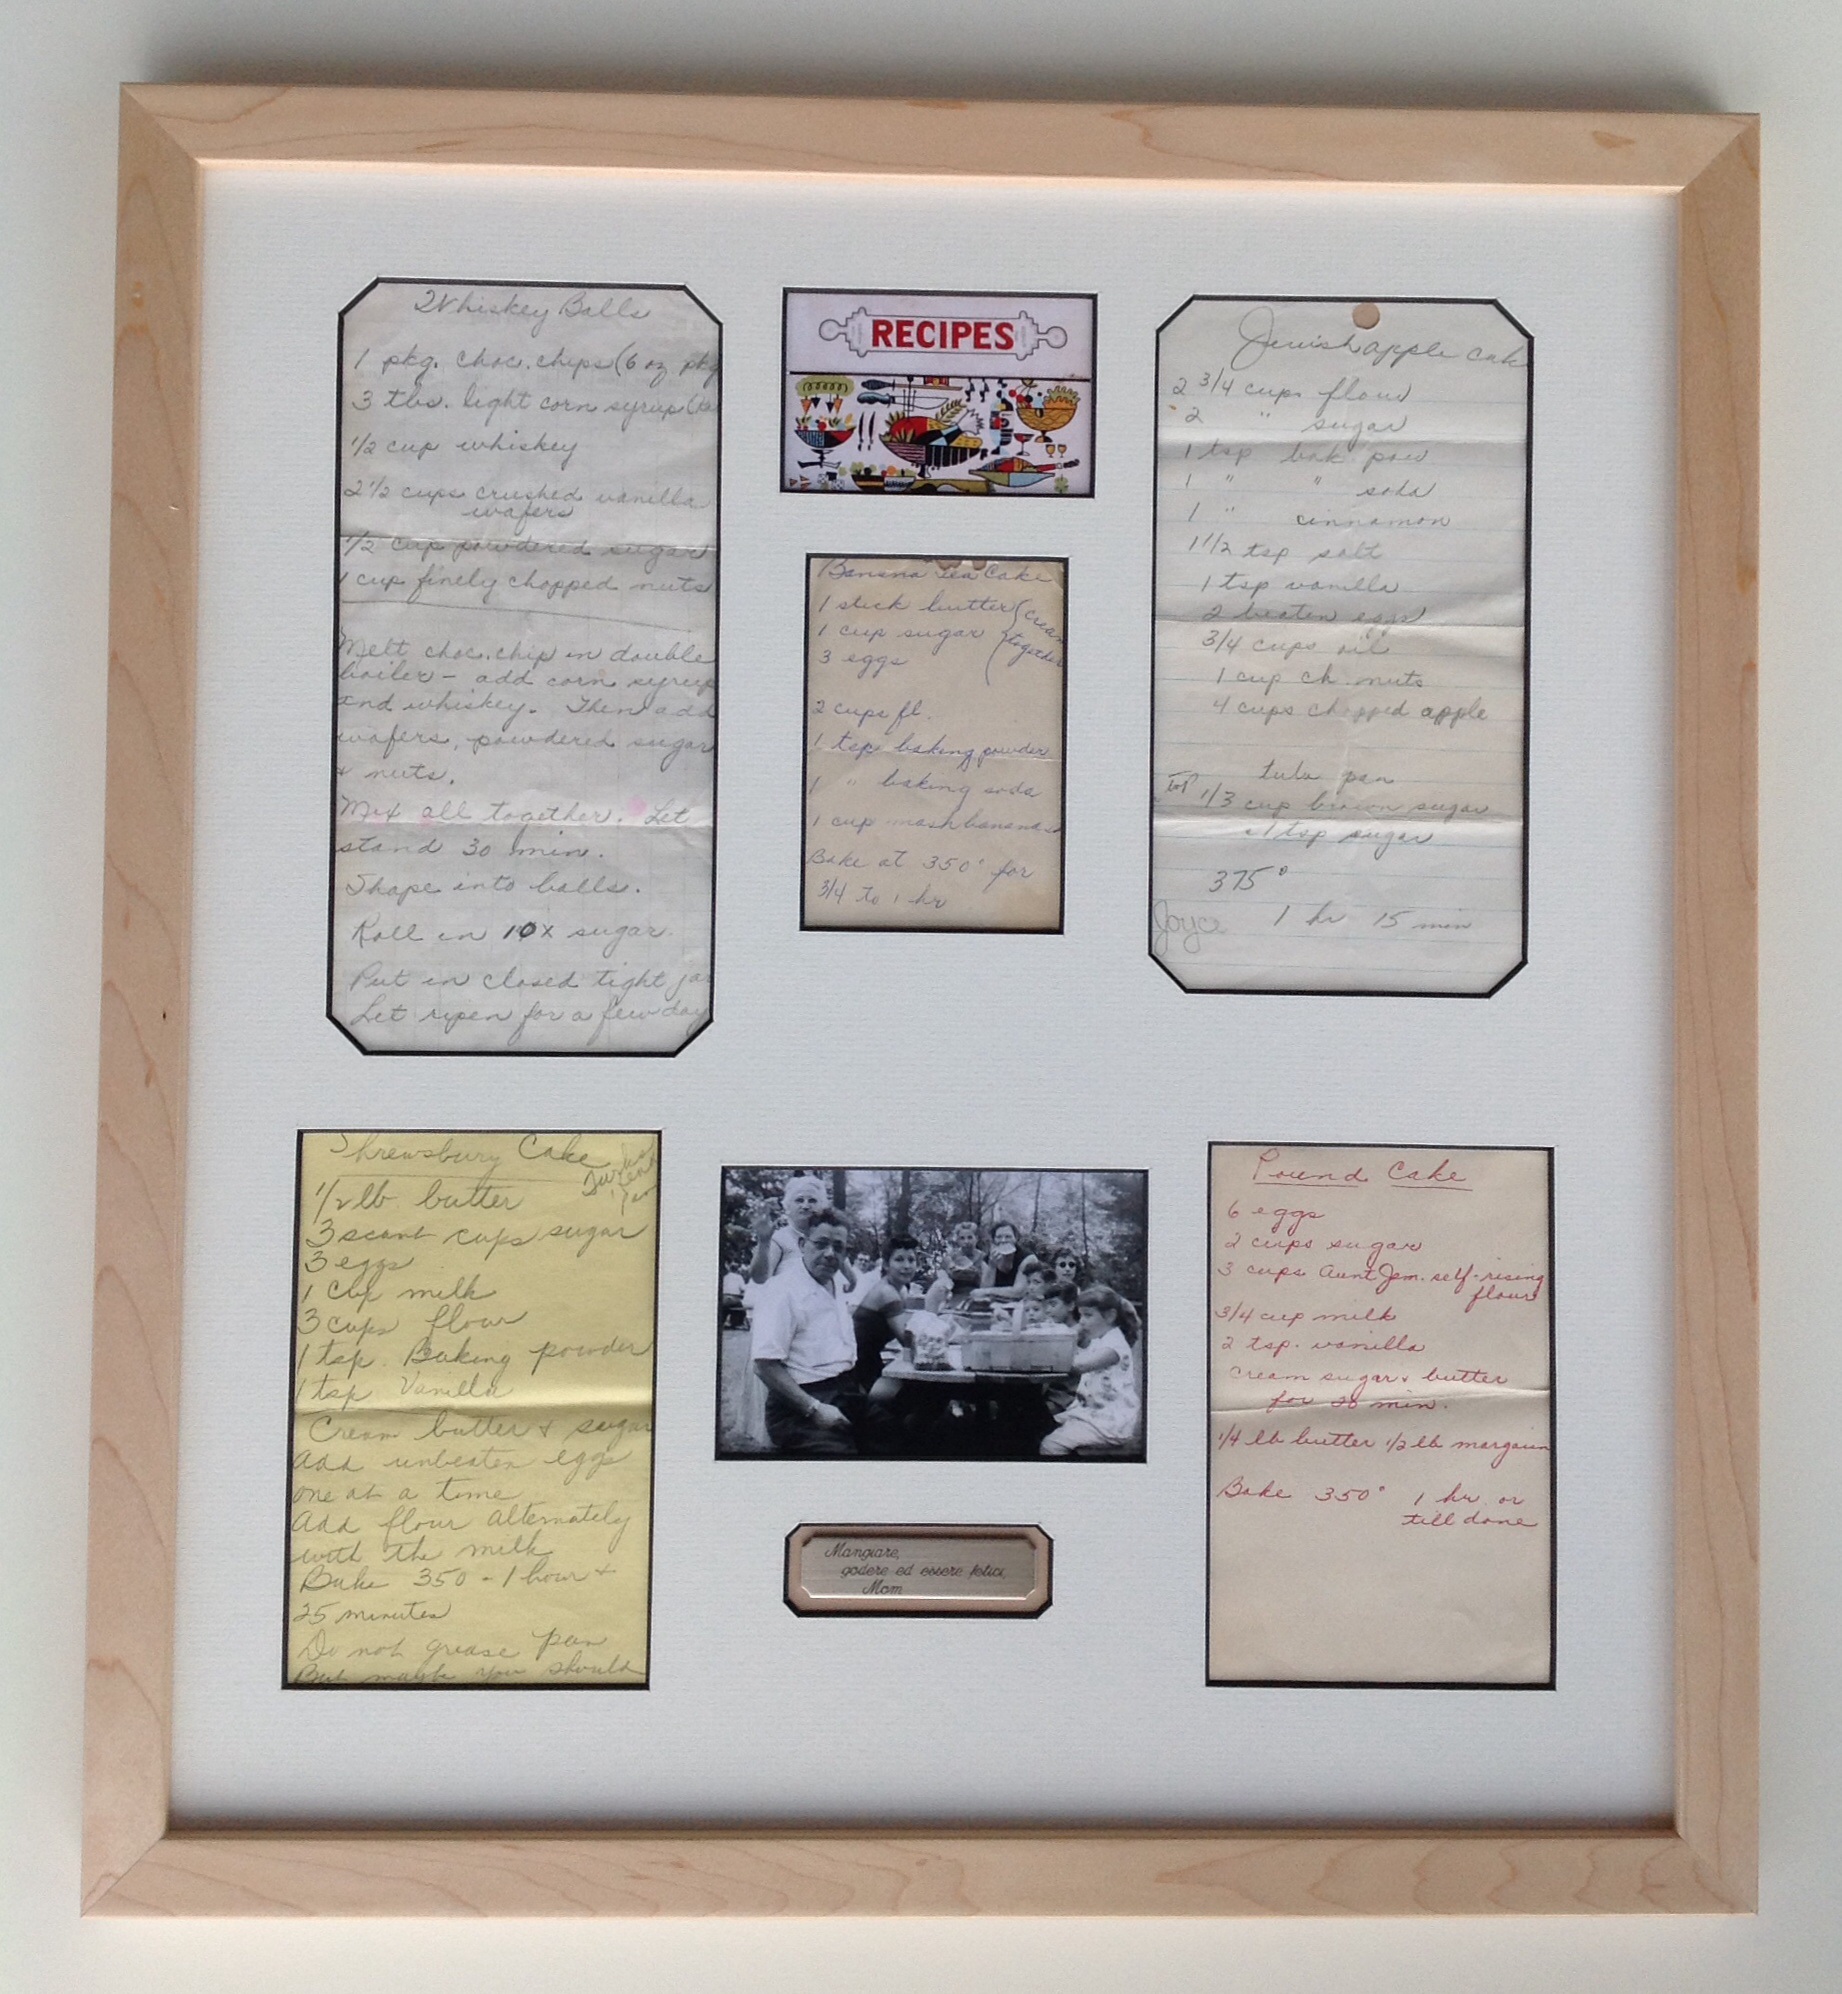 Whiskey Balls
1 pkg. choc. chips (6 oz pkg
3 tbs. light corn syrup
1/2 cup whiskey
2 1/2 cups crushed vanilla
wafers
1/2 cup powdered sugar
1 cup finely chopped nuts
Melt choc. chip in double
boiler - add corn syrup
and whiskey. Then add
wafers, powdered sugar
+ nuts.
Mix all together. Let
stand 30 min.
Shape into balls.
Roll in 10x sugar.
Put in closed tight ja
Let ripen for a few day
RECIPES
Banana Tea Cake
1 stick butter (cream
1 cup sugar together
3 eggs
2 cups fl.
1 tsp baking powder
1 " baking soda
1 cup mash bananas
Bake at 350° for
3/4 to 1 hr
Jewish apple cake
2 3/4 cups flour
2 " sugar
1 tsp bak pow
1 " " soda
1 " cinnamon
1 1/2 tsp salt
1 tsp vanilla
2 beaten eggs
3/4 cups oil
1 cup ch. nuts
4 cups chopped apple
tube pan
top 1/3 cup brown sugar
1 tsp sugar
375°
Joyce 1 hr 15 min
Shrewsbury Cake
1/2 lb butter
3 scant cups sugar
3 eggs
1 cup milk
3 cups flour
1 tsp. Baking powder
1 tsp Vanilla
Cream butter + sugar
add unbeaten eggs
one at a time
add flour alternately
with the milk
Bake 350 - 1 hour +
25 minutes
Do not grease pan
But maybe you should
Mangiare,
godere ed essere felici,
Mom
Pound Cake
6 eggs
2 cups sugar
3 cups Aunt Jem. self-rising
flour
3/4 cup milk
2 tsp. vanilla
Cream sugar + butter
for 20 min.
1/4 lb butter 1/2 lb margarin
Bake 350° 1 hr or
till done